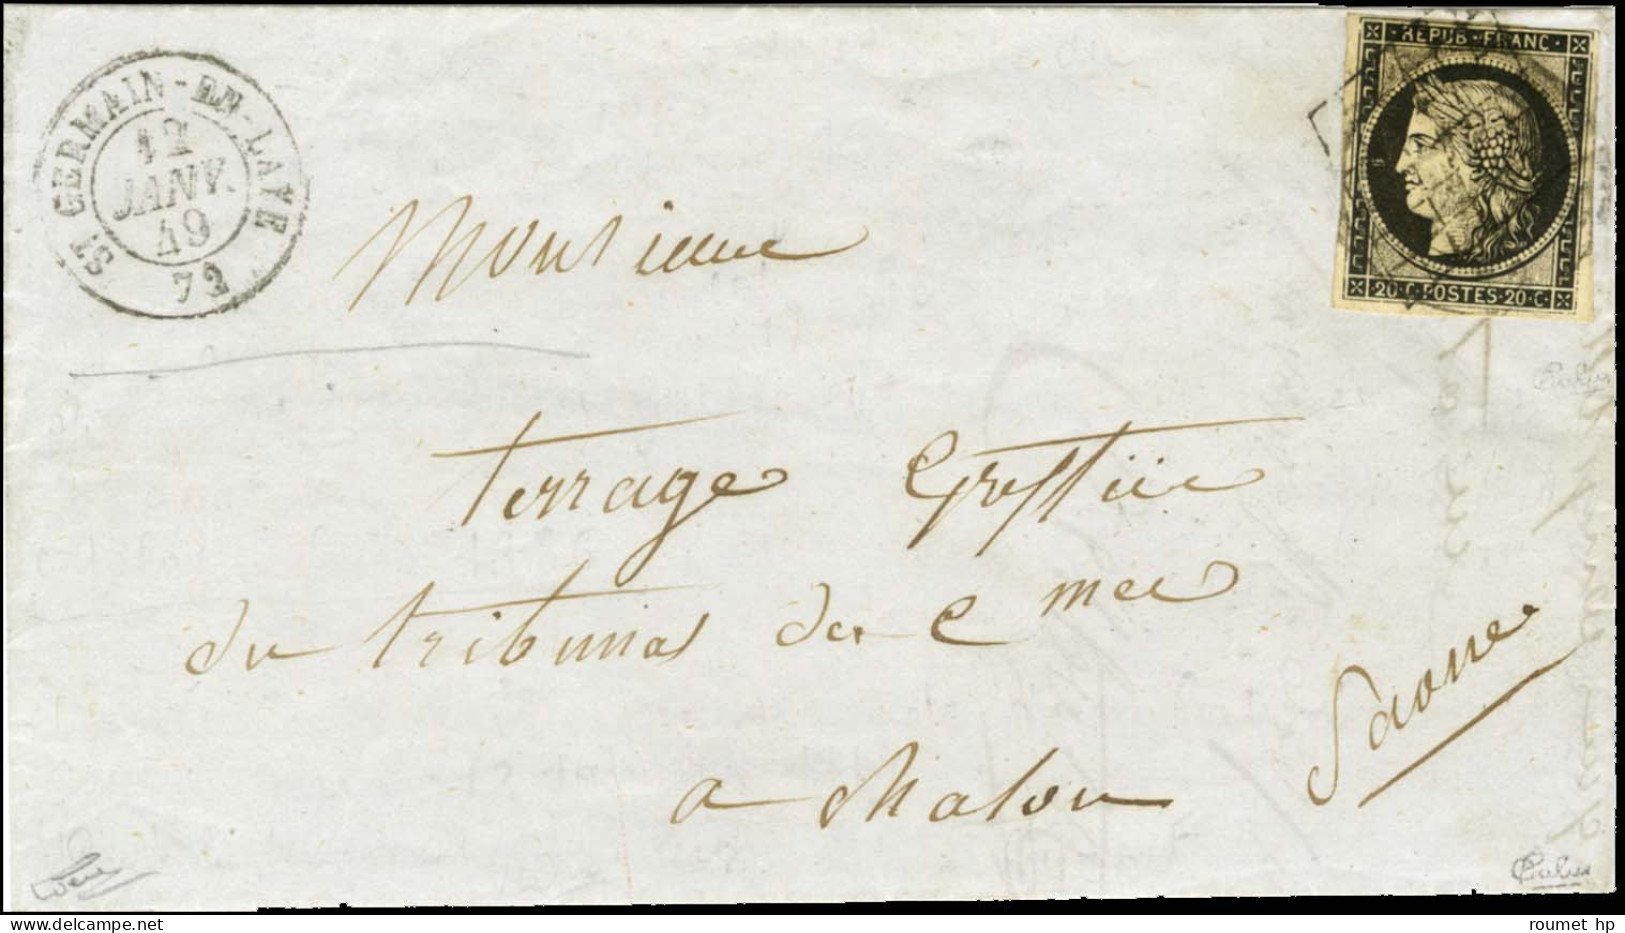 ST GERMAIN-EN-LAYE
12
JANV.
49
73
REPUB·FRANC·
20·C·POSTES·20·C·
Monsieur
Terrage Greffier
du tribunal de Cmerce
a Chalon
Saone
Calves
Calves
roumet hp